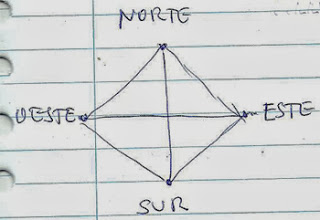 NORTE
OESTE ESTE
SUR